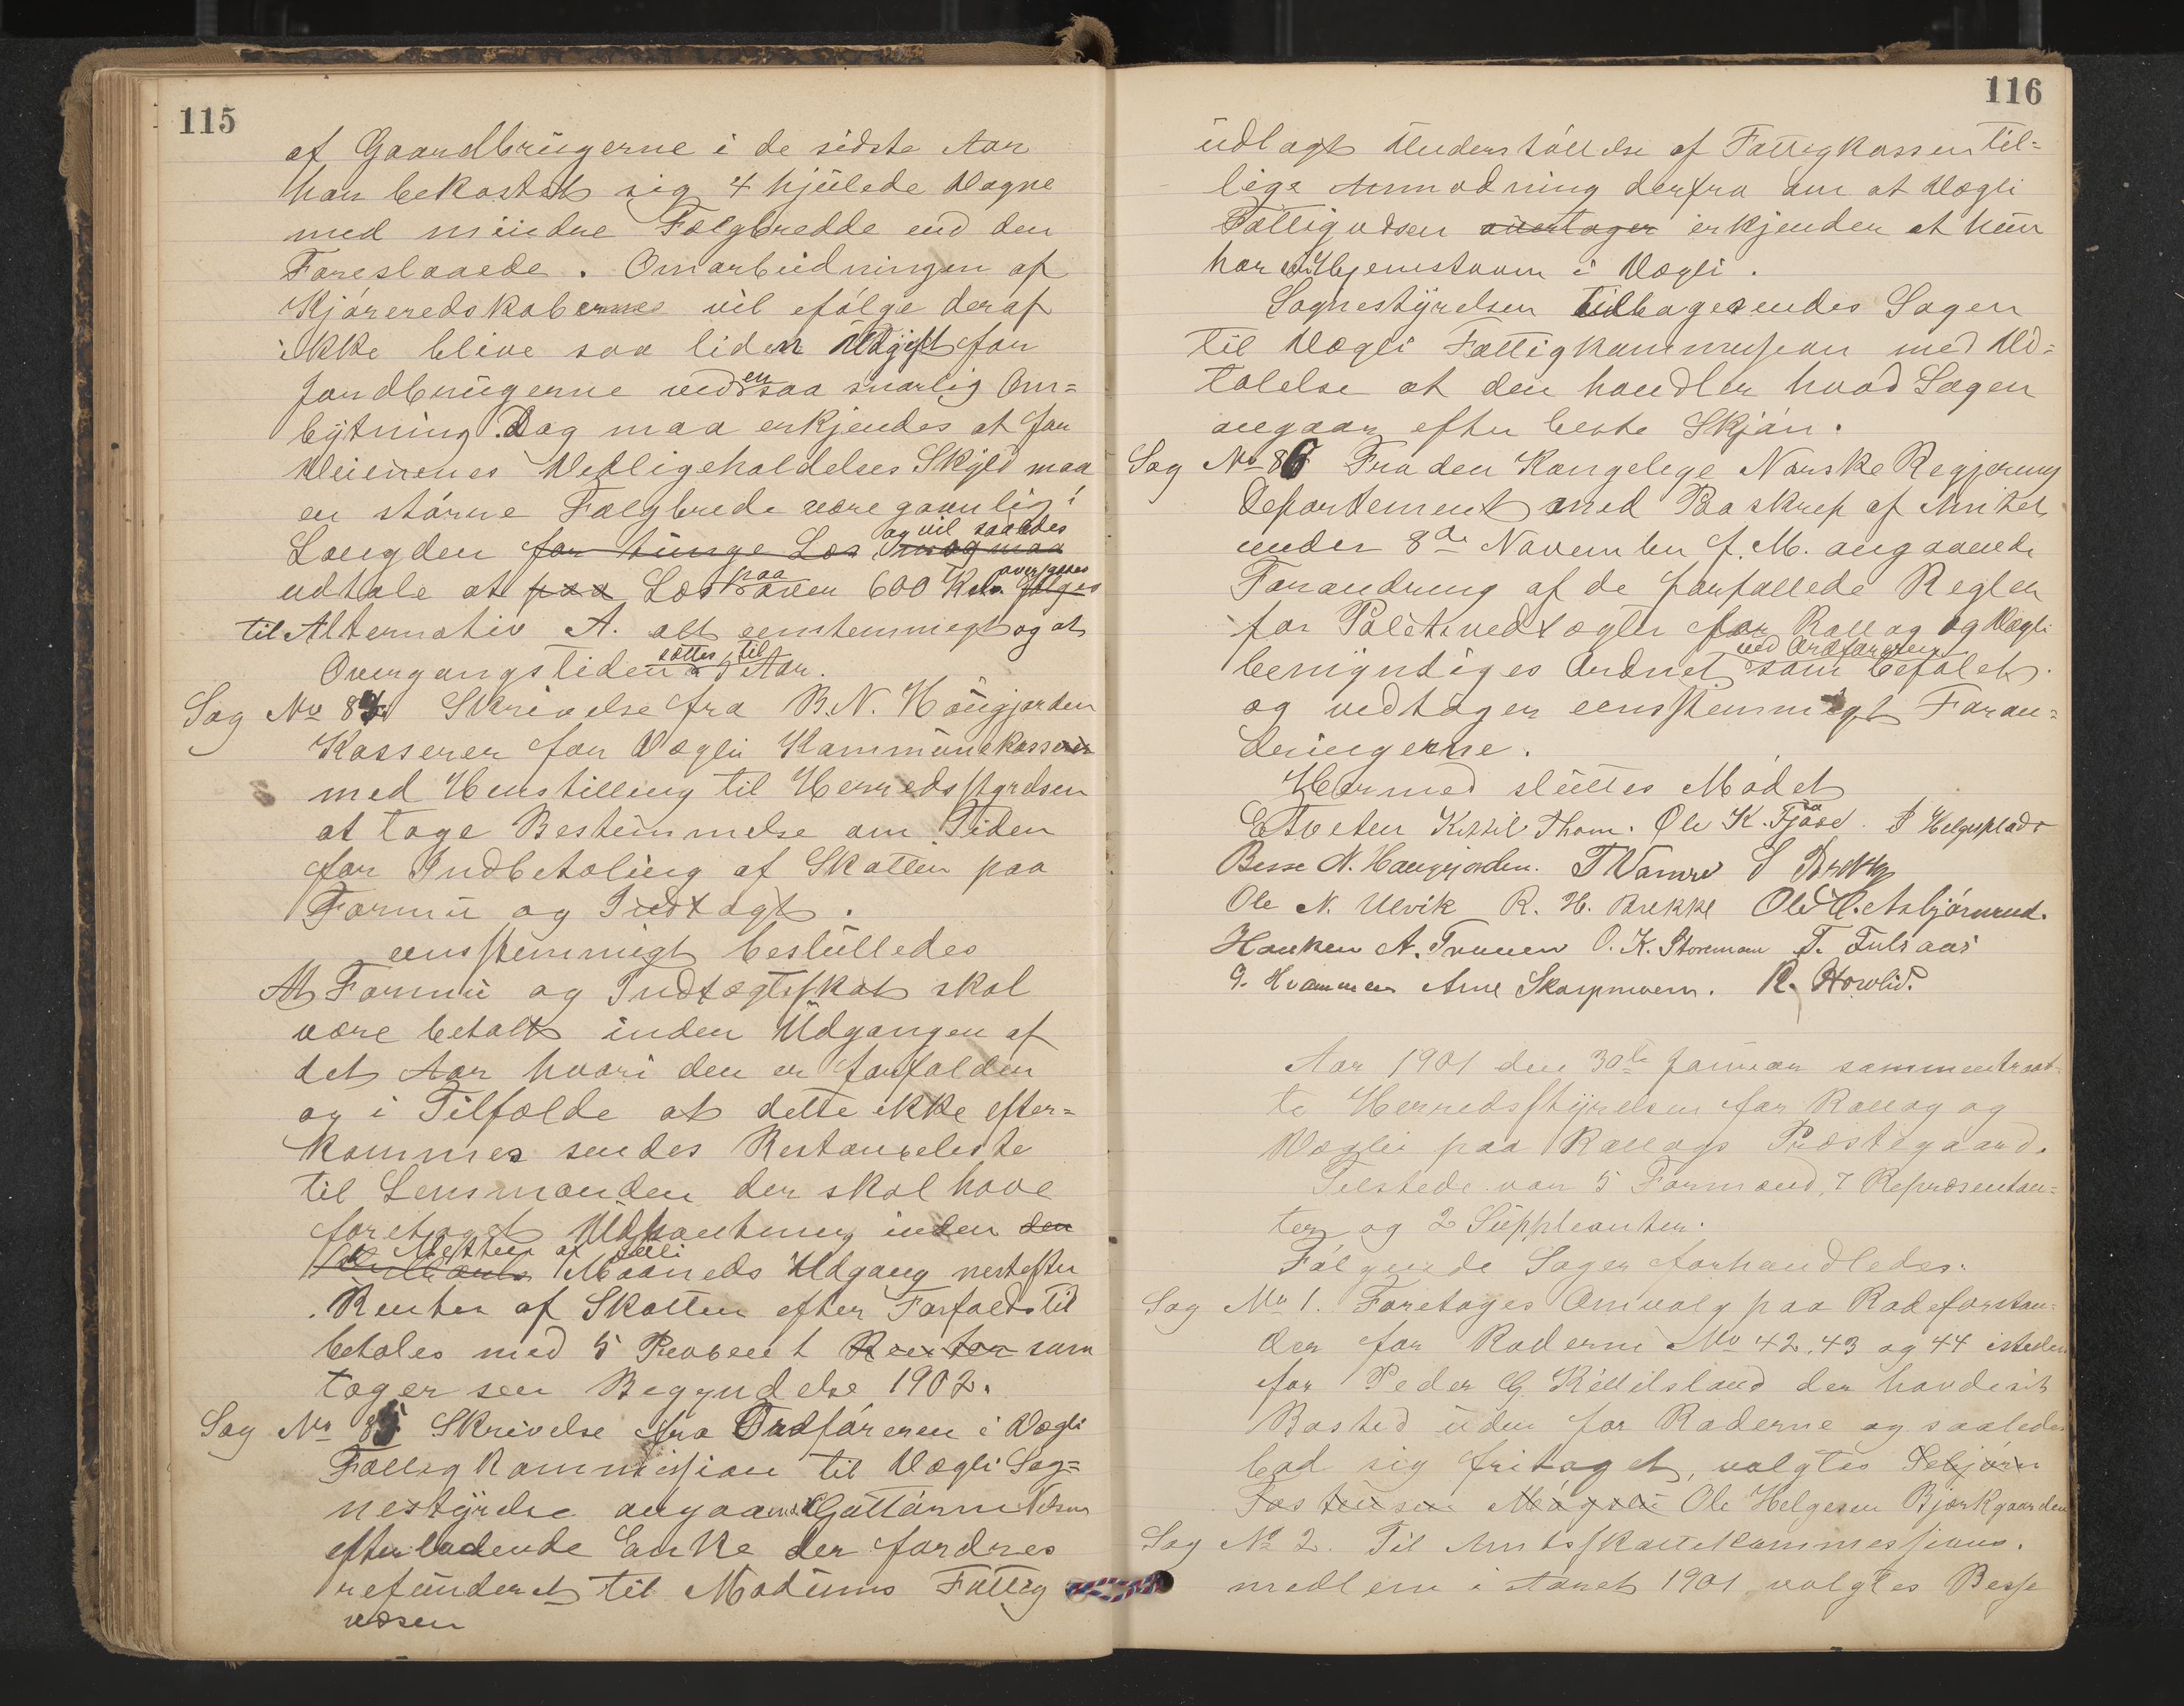 115
af Gaardbrugerne i de sidste Aar
har bekostet sig 4 hjulede Vogne
med mindre Fælgbredde end den
Foreslaaede. Omarbeidningen af
Kjøreredskaberne vil efølge deraf
ikke blive saa liden Udgift for
Jordbrugerne ved en saa snarlig Om=
bytning. Dog maa erkjendes at for
Veienes Vedligeholdelses Skyld maa
en større Fælgbrede være gavnlig i
Længden for tunge Læs og maa og vil saaledes
udtale at paa Læs paa over 600 Kilo følges
til Alternativ A. alt eenstemmigt og at
Overgangstiden sættes til Aar.
Sag No 84. Skrivelse fra B.N. Haugjorden
Kasserer for Vægli Kommunekasse
med Henstilling til Herredsstyrelsen
at tage Bestemmelse om Tiden
for Indbetaling af Skatten paa
Formu og Indtægt.
eensstemmigt besluttedes
At Formu og Indtægtsskat skal
være betalt inden Udgangen af
det Aar hvori den er forfalden
og i Tilfælde at dette ikke efter=
kommes sendes Restanseliste
til Lensmanden der skal have
foretaget Udpantning inden den
Maaneds Udgang nestefter
Renter af Skatten efter Forfaldstid
betales med 5 Procent Renter som
tager sen Begyndelse 1902.
Sag No 85 Skrivelse fra Ordføreren i Vægli
Fattigkommission til Vægli Sog=
nestyrelse angaaende Guttorm Nelsen
efterladende Enke der fordres
refunderet til Modums Fattig
væsen
116
udlagt Understøttelse af Fattigkassen til=
lige Anmodning derfra om at Vægli
Fattigvæsen overtager erkjender at hun
har Hjemstavn i Vægli.
Sognestyrelsen tilbagesendes Sagen
til Vægli Fattigkommission med Ud=
talelse at den handler hvad Sagen
angaar efter beste Skjøn.
Sag No 86 Fra den Kongelige Norske Regjering
Departement med Paaskrift af Amtet
under 8de November f. M. angaaende
Forandring af de forfattede Regler
for Politivedtægter for Rollag og Vægli
bemyndiges Andnet ved Ordføreren som befalet
og vedtages eensstemmigt Foran=
dringerne.
Hermed sluttes Mødet
E Tveten Kittil Thom. Ole K. Fjøse. Helgesplads
Besse N. Haugjorden. T Vamre S
Ole N. Ulvik R. H. Brekke Ole O. Asbjørnrud.
Haaken A. Traaen O. K. Storemoen T. Fulsaas
G. Hvammen Arne Skarpmoen. R. Hovlid.
Aar 1901 den 30te Januar sammentraad=
te Herredsstyrelsen for Rollag og
Vægli paa Rollags Præstegaard.
Tilstede var 5 Formænd, 7 Repræsentan=
ter og 2 Suppleanter.
Følgende Sager forhandledes.
Sag No 1. Foretoges Omvalg paa Rodeforstan=
der for Roderne No 42, 43 og 44 isteden
for Peder G. Kittilsland der havde sit
Bosted uden for Roderne og saaledes
bad sig fritaget, valgtes Sebjørn
Ole Helgesen Bjørkgaarden
Sag No 2. Til Amtsskattekommissions.
medlem i Aaret 1901 valgtes Besse